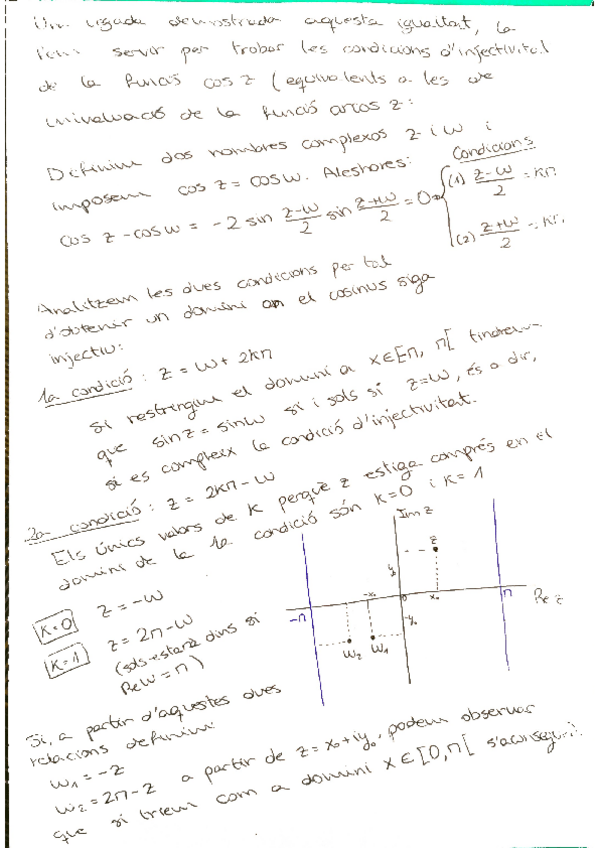 Una vegada demostrada aquesta igualtat, la
fem servir per trobar les condicions d'injectivitat
de la funció cos z (equivalents a les de
univaluació de la funció arcos z:
Definim dos nombres complexos z i w i
imposem cos z = cos w. Aleshores:
Condicions
cos z - cos w = -2 sin (z-w)/2 sin (z+w)/2 = 0 →
(1) (z-w)/2 = kπ
(2) (z+w)/2 = kπ
Analitzem les dues condicions per tal
d'obtenir un domini on el cosinus siga
injectiu:
1a condició: z = w + 2kπ
Si restringim el domini a x∈[-π, π[ tindrem
que sin z = sin w si i sols si z=w, és a dir,
si es compleix la condició d'injectivitat.
2a condició: z = 2kπ - w
Els únics valors de k perquè z estiga comprés en el
domini de la 1a condició són k=0 i k=1
k=0 z = -w
k=1 z = 2π - w
(sols estarà dins si
Re w = π)
Im z
z
y₀
-x₀
0
x₀
-π
π
Re z
-y₀
w₂
w₁
Si, a partir d'aquestes dues
relacions definim:
w₁ = -z
w₂ = 2π - z a partir de z = x₀ + iy₀, podem observar
que si triem com a domini x∈[0, π[ s'aconsegui